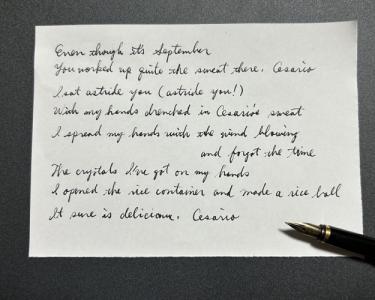 Even though it's September
You worked up quite the sweat there, Cesario
I sat astride you (astride you!)
With my hands drenched in Cesario's sweat
I spread my hands with the wind blowing
and forgot the time
The crystals I've got on my hands
I opened the rice container and made a rice ball
It sure is delicious, Cesario